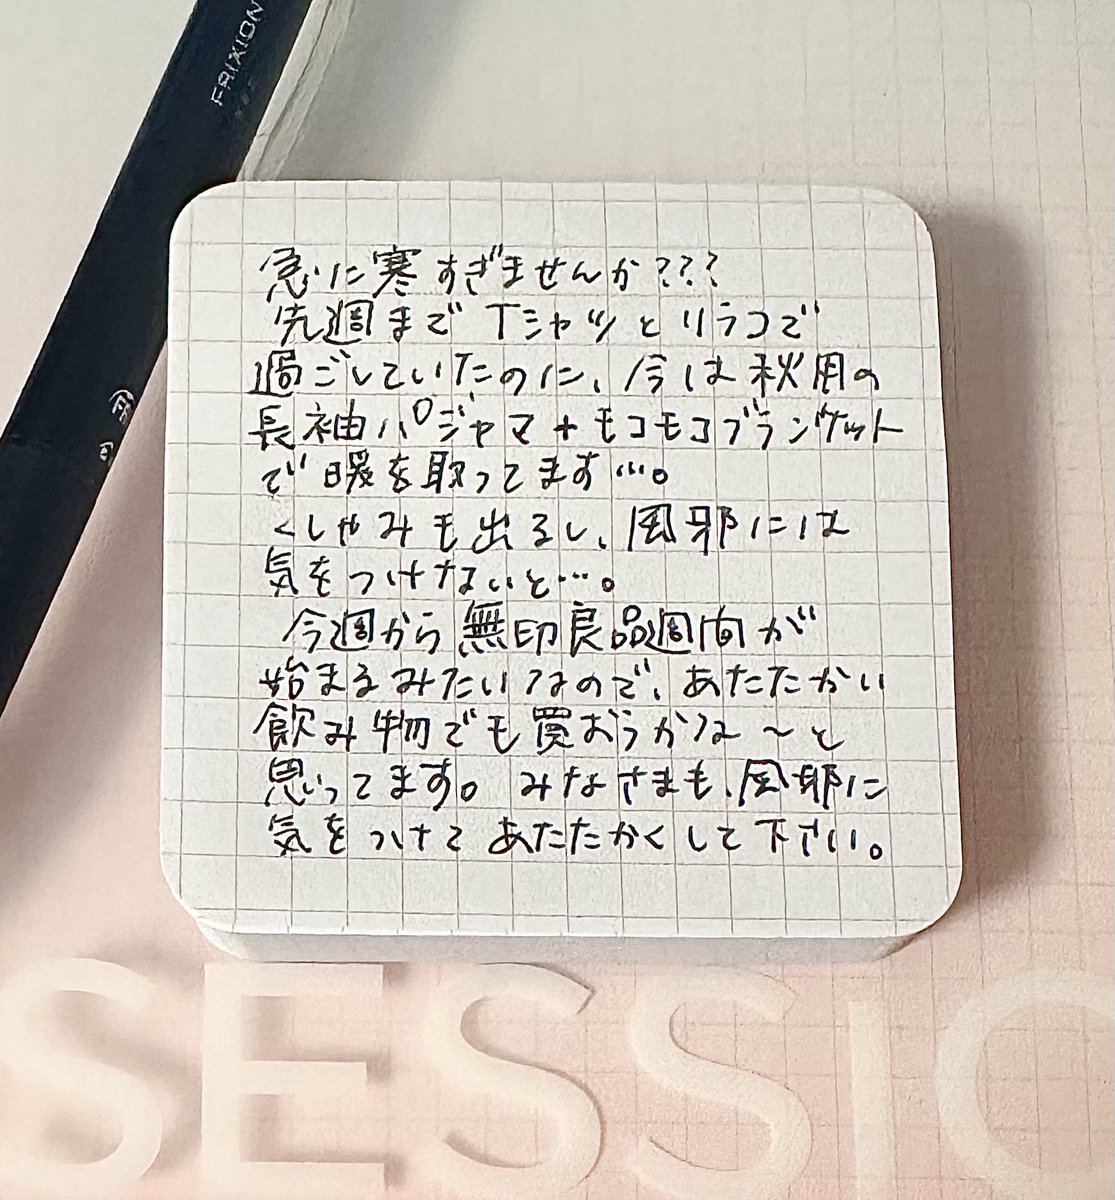 FRIXION
急に寒すぎませんか???
先週までTシャツとリラコで
過ごしていたのに、今は秋用の
長袖パジャマ+モコモコブランケット
で暖を取ってます…。
くしゃみも出るし、風邪には
気をつけないと…。
今週から無印良品週間が
始まるみたいなので、あたたかい
飲み物でも買おうかな~と
思ってます。みなさまも、風邪に
気をつけてあたたかくして下さい。
SESSIO